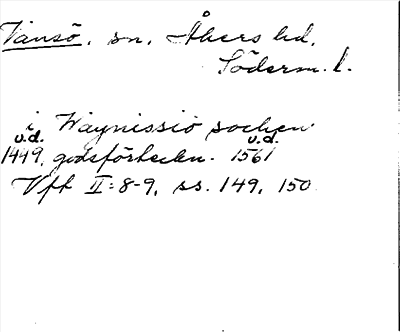 Vansö, sn, Åkers hd,
Söderm. l.
i Waynissiö sochen
u.d. u.d.
1449, godsförteckn. 1561
Vfk II:8-9, ss. 149, 150